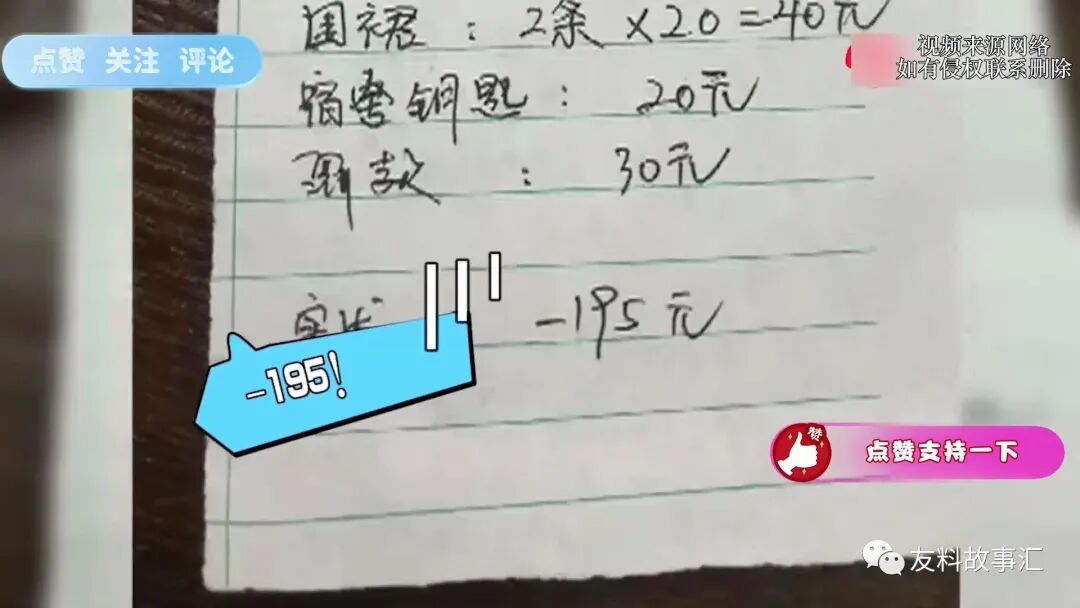 围裙：2条×20=40元
点赞 关注 评论
视频来源网络
如有侵权联系删除
宿舍钥匙：20元
罚款：30元
-195元
-195！
赞
点赞支持一下
友料故事汇